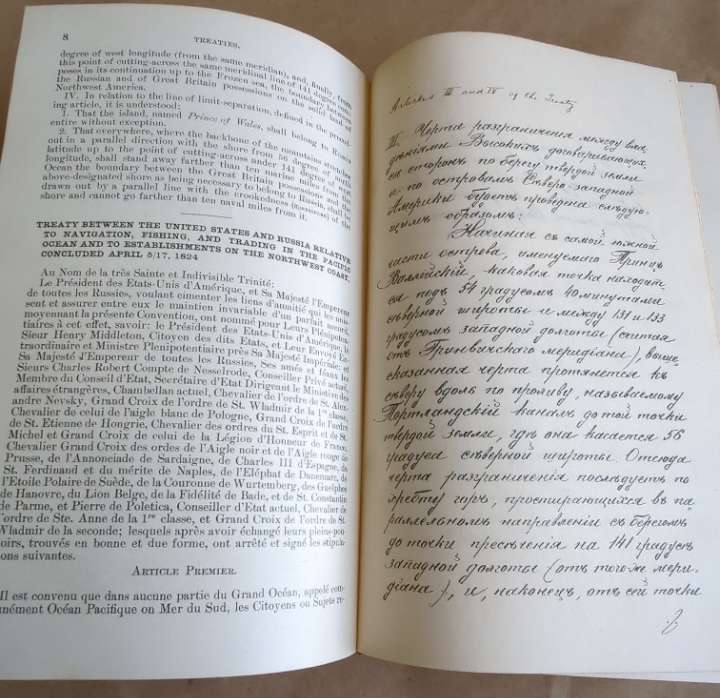 8 TREATIES.
degree of west longitude (from the same meridian), and, finally, from
this point of cutting-across the same meridional line of 141 degree com-
poses in its continuation up to the Frozen sea, the boundary between
the Russian and of Great Britain possessions on the solid land of
Northwest America.
IV. In relation to the line of limit-separation, defined in the preced-
ing article, it is understood;
1. That the island, named Prince of Wales, shall belong to Russia
entire without exception.
2. That everywhere, where the backbone of the mountains stretches
out in a parallel direction with the shore from 56 degree of north
latitude up to the point of cutting-across under 141 degree of west
longitude, shall stand away farther than ten marine miles from the
Ocean the boundary between the Great Britain possessions and the
above-designated shore as being necessary to belong to Russia, shall be
drawn out by a parallel line with the crookedness (measures) of the
shore and cannot go farther than ten naval miles from it.
TREATY BETWEEN THE UNITED STATES AND RUSSIA RELATIVE
TO NAVIGATION, FISHING, AND TRADING IN THE PACIFIC
OCEAN AND TO ESTABLISHMENTS ON THE NORTHWEST COAST,
CONCLUDED APRIL 5/17, 1824
Au Nom de la très Sainte et Indivisible Trinité:
Le Président des Etats-Unis d'Amérique, et Sa Majesté l'Empereur
de toutes les Russies, voulant cimenter les liens d'amitié qui les unis-
sent et assurer entre eux le maintien invariable d'un parfait accord,
moyennant la présente Convention, ont nommé pour Leurs Plénipoten-
tiaires à cet effet, savoir: le Président des Etats-Unis d'Amérique, le
Sieur Henry Middleton, Citoyen des dits Etats, et Leur Envoyé Ex-
traordinaire et Ministre Plenipotentiaire près Sa Majesté Impériale: et
Sa Majesté l'Empereur de toutes les Russies, Ses amés et féaux les
Sieurs Charles Robert Compte de Nesselrode, Conseiller Privé actuel,
Membre du Conseil d'Etat, Secrétaire d'Etat Dirigeant le Ministère des
affaires étrangères, Chambellan actuel, Chevalier de l'ordre de St. Alex-
andre Nevsky, Grand Croix de l'ordre de St. Wladmir de la 1re classe,
Chevalier de celui de l'aigle blanc de Pologne, Grand Croix de l'ordre
de St. Etienne de Hongrie, Chevalier des ordres du St. Esprit et de St.
Michel et Grand Croix de celui de la Légion d'Honneur de France,
Chevalier Grand Croix des ordres de l'Aigle noir et de l'Aigle rouge de
Prusse, de l'Annonciade de Sardaigne, de Charles III d'Espagne, de
St. Ferdinand et du mérite de Naples, de l'Eléphat de Danemarc, de
l'Etoile Polaire de Suède, de la Couronne de Wurtemberg, des Guelphes
de Hanovre, du Lion Belge, de la Fidélité de Bade, et de St. Constantin
de Parme, et Pierre de Poletica, Conseiller d'Etat actuel, Chevalier de
l'ordre de Ste. Anne de la 1re classe, et Grand Croix de l'Ordre de St.
Wladmir de la seconde; lesquels après avoir échangé leurs plein-pou-
voirs, trouvés en bonne et due forme, ont arrêté et signé les stipula-
tions suivantes.
ARTICLE PREMIER.
Il est convenu que dans aucune partie du Grand Océan, appelé com-
munément Océan Pacifique on Mer du Sud, les Citoyens ou Sujets re-
Articles III and IV of the Treaty
III. Черта разграниченія между вла-
дѣніями Высокихъ договаривающих-
ся сторонъ по берегу твердой земли
и по островамъ Сѣверо-западной
Америки будетъ проведена слѣдую-
щимъ образомъ:
Начиная съ самой южной
части острова, именуемаго Принцъ
Валлійскій, каковая точка находит-
ся подъ 54 градусомъ 40 минутами
сѣверной широты и между 131 и 133
градусомъ западной долготы (считая
отъ Гринвичскаго меридіана), выше
сказанная черта протянется къ
сѣверу вдоль по проливу, называемому
Портландскій каналъ до той точки
твердой земли, гдѣ она касается 56
градуса сѣверной широты. Отсюда
черта разграниченія послѣдуетъ по
хребту горъ, простирающихся въ па-
раллельномъ направленіи съ берегомъ
до точки пресѣченія на 141 градусѣ
западной долготы (отъ того-же мери-
діана), и, наконецъ, отъ сей точки